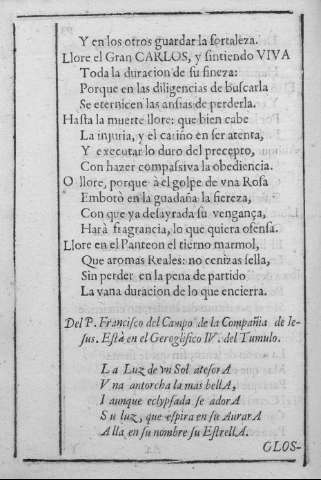 Y en los otros guardar la fortaleza.
Llore el Gran CARLOS, y sintiendo VIVA
Toda la duracion de su fineza:
Porque en las diligencias de buscarla
Se eternicen las ansias de perderla.
Hasta la muerte llore: que bien cabe
La injuria, y el cariño en ser atenta,
Y executar lo duro del precepto,
Con hazer compassiva la obediencia.
O llore, porque à el golpe de vna Rosa
Embotò en la guadaña la fiereza,
Con que ya desayrada su vengança,
Harà fragrancia, lo que quiera ofensa.
Llore en el Panteon el tierno marmol,
Que aromas Reales: no cenizas sella,
Sin perder en la pena de partido
La vana duracion de lo que encierra.
Del P. Francisco del Campo de la Compañia de Ie-
sus. Està en el Geroglifico IV. del Tumulo.
La Luz de vn Sol atesorA
Vna antorcha la mas bellA,
I aunque eclypsada se adorA
Su luz, que espira en su AurorA
Alla en su nombre su EstrellA.
GLOS-